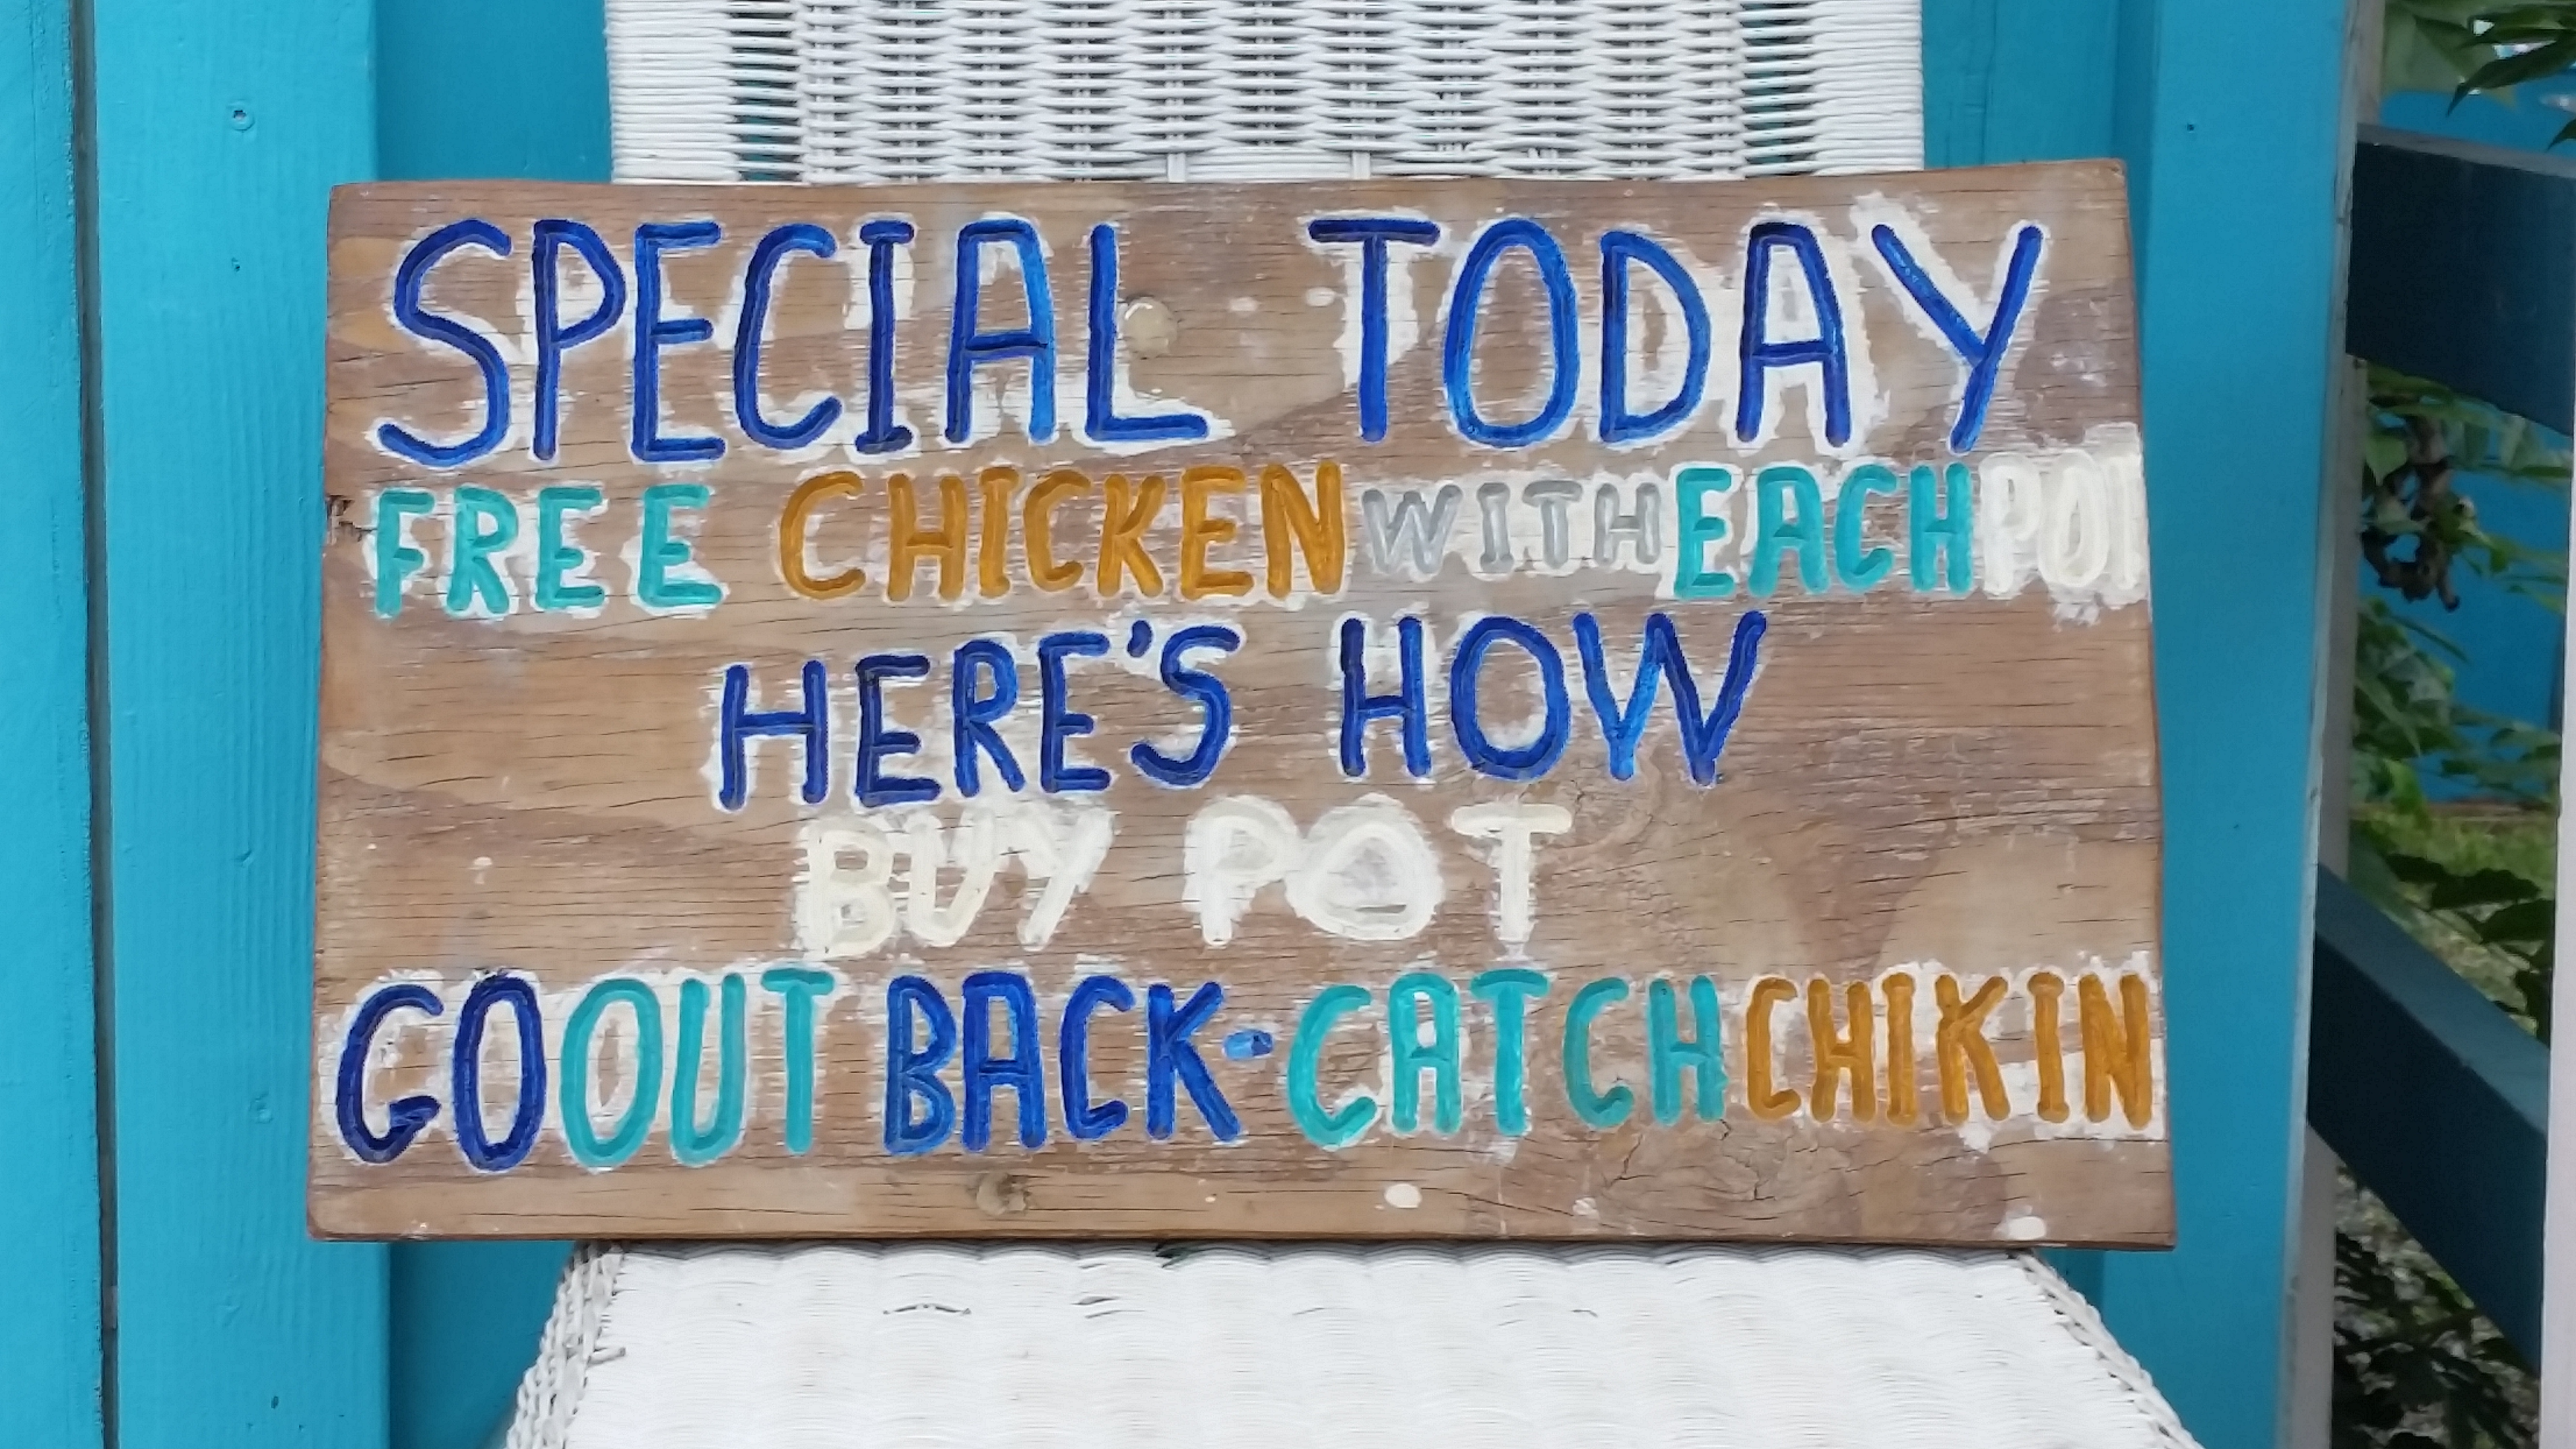 SPECIAL TODAY
FREE CHICKEN WITH EACH POT
HERE'S HOW
BUY POT
GO OUT BACK-CATCH CHIKIN